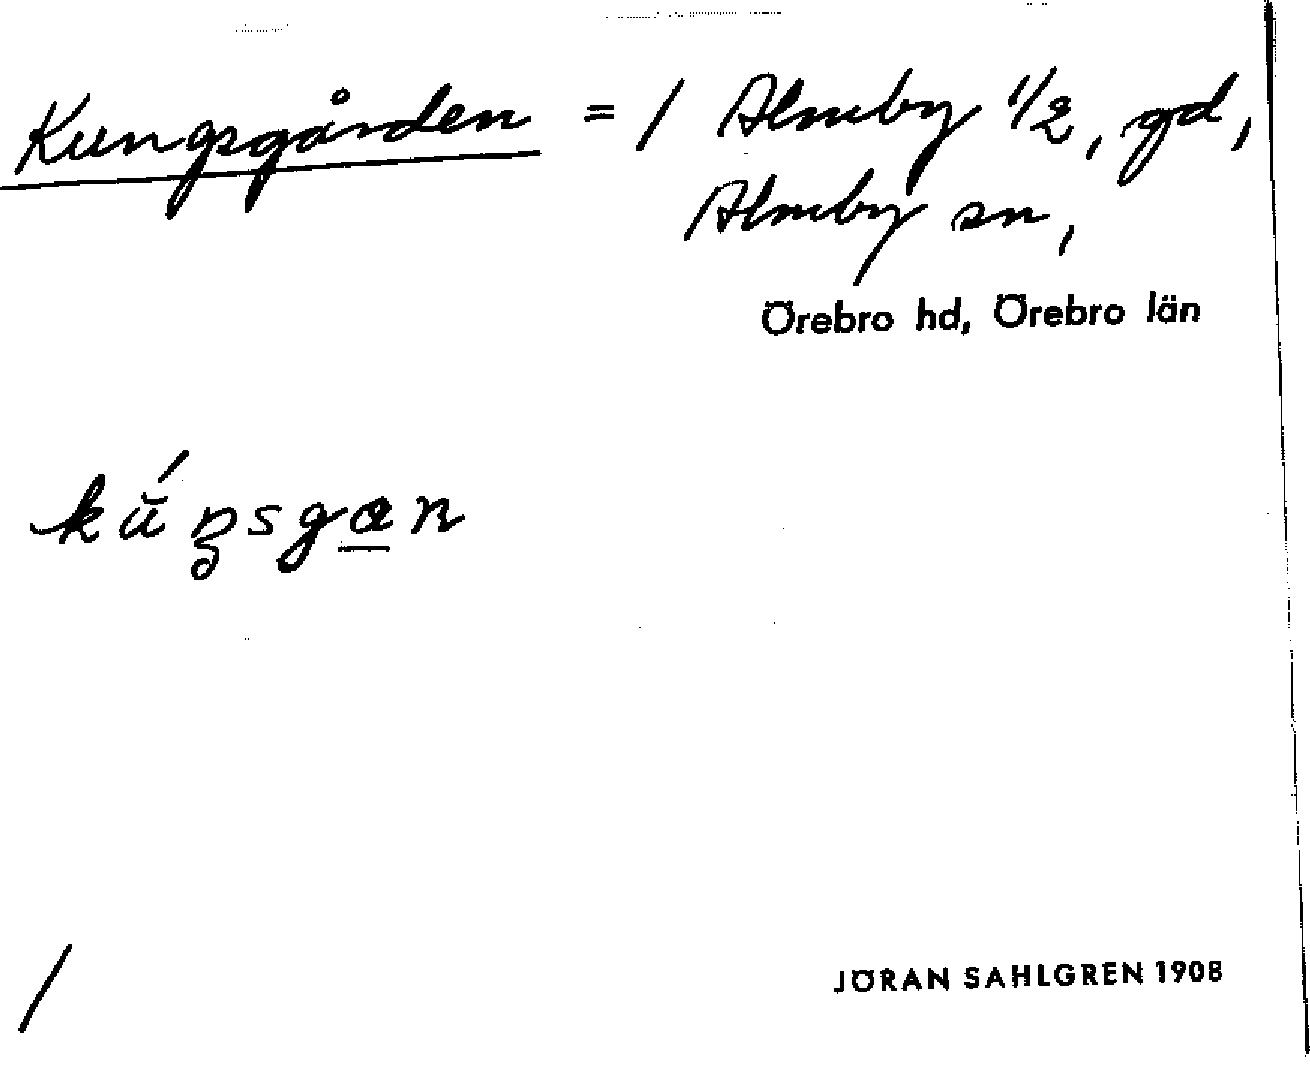 Kungsgården = / Almby 1/2, gd,
Almby sn,
Örebro hd, Örebro län
/
JÖRAN SAHLGREN 1908